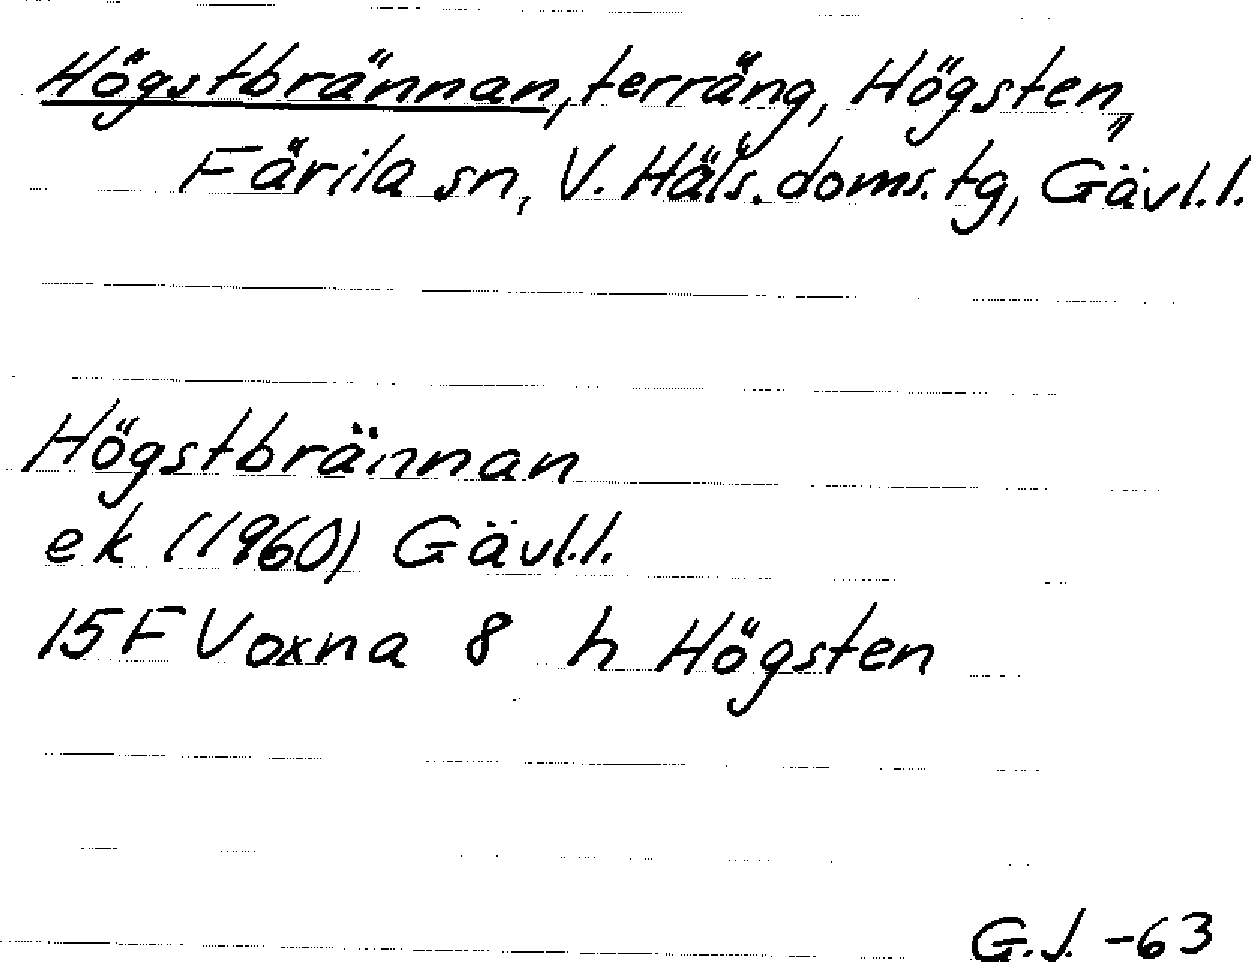 Högstbrännan, terräng, Högsten,
Färila sn, V. Häls. doms. tg, Gävl.l.
Högstbrännan
ek (1960) Gävl.l.
15F Voxna 8 h Högsten
G.J. -63